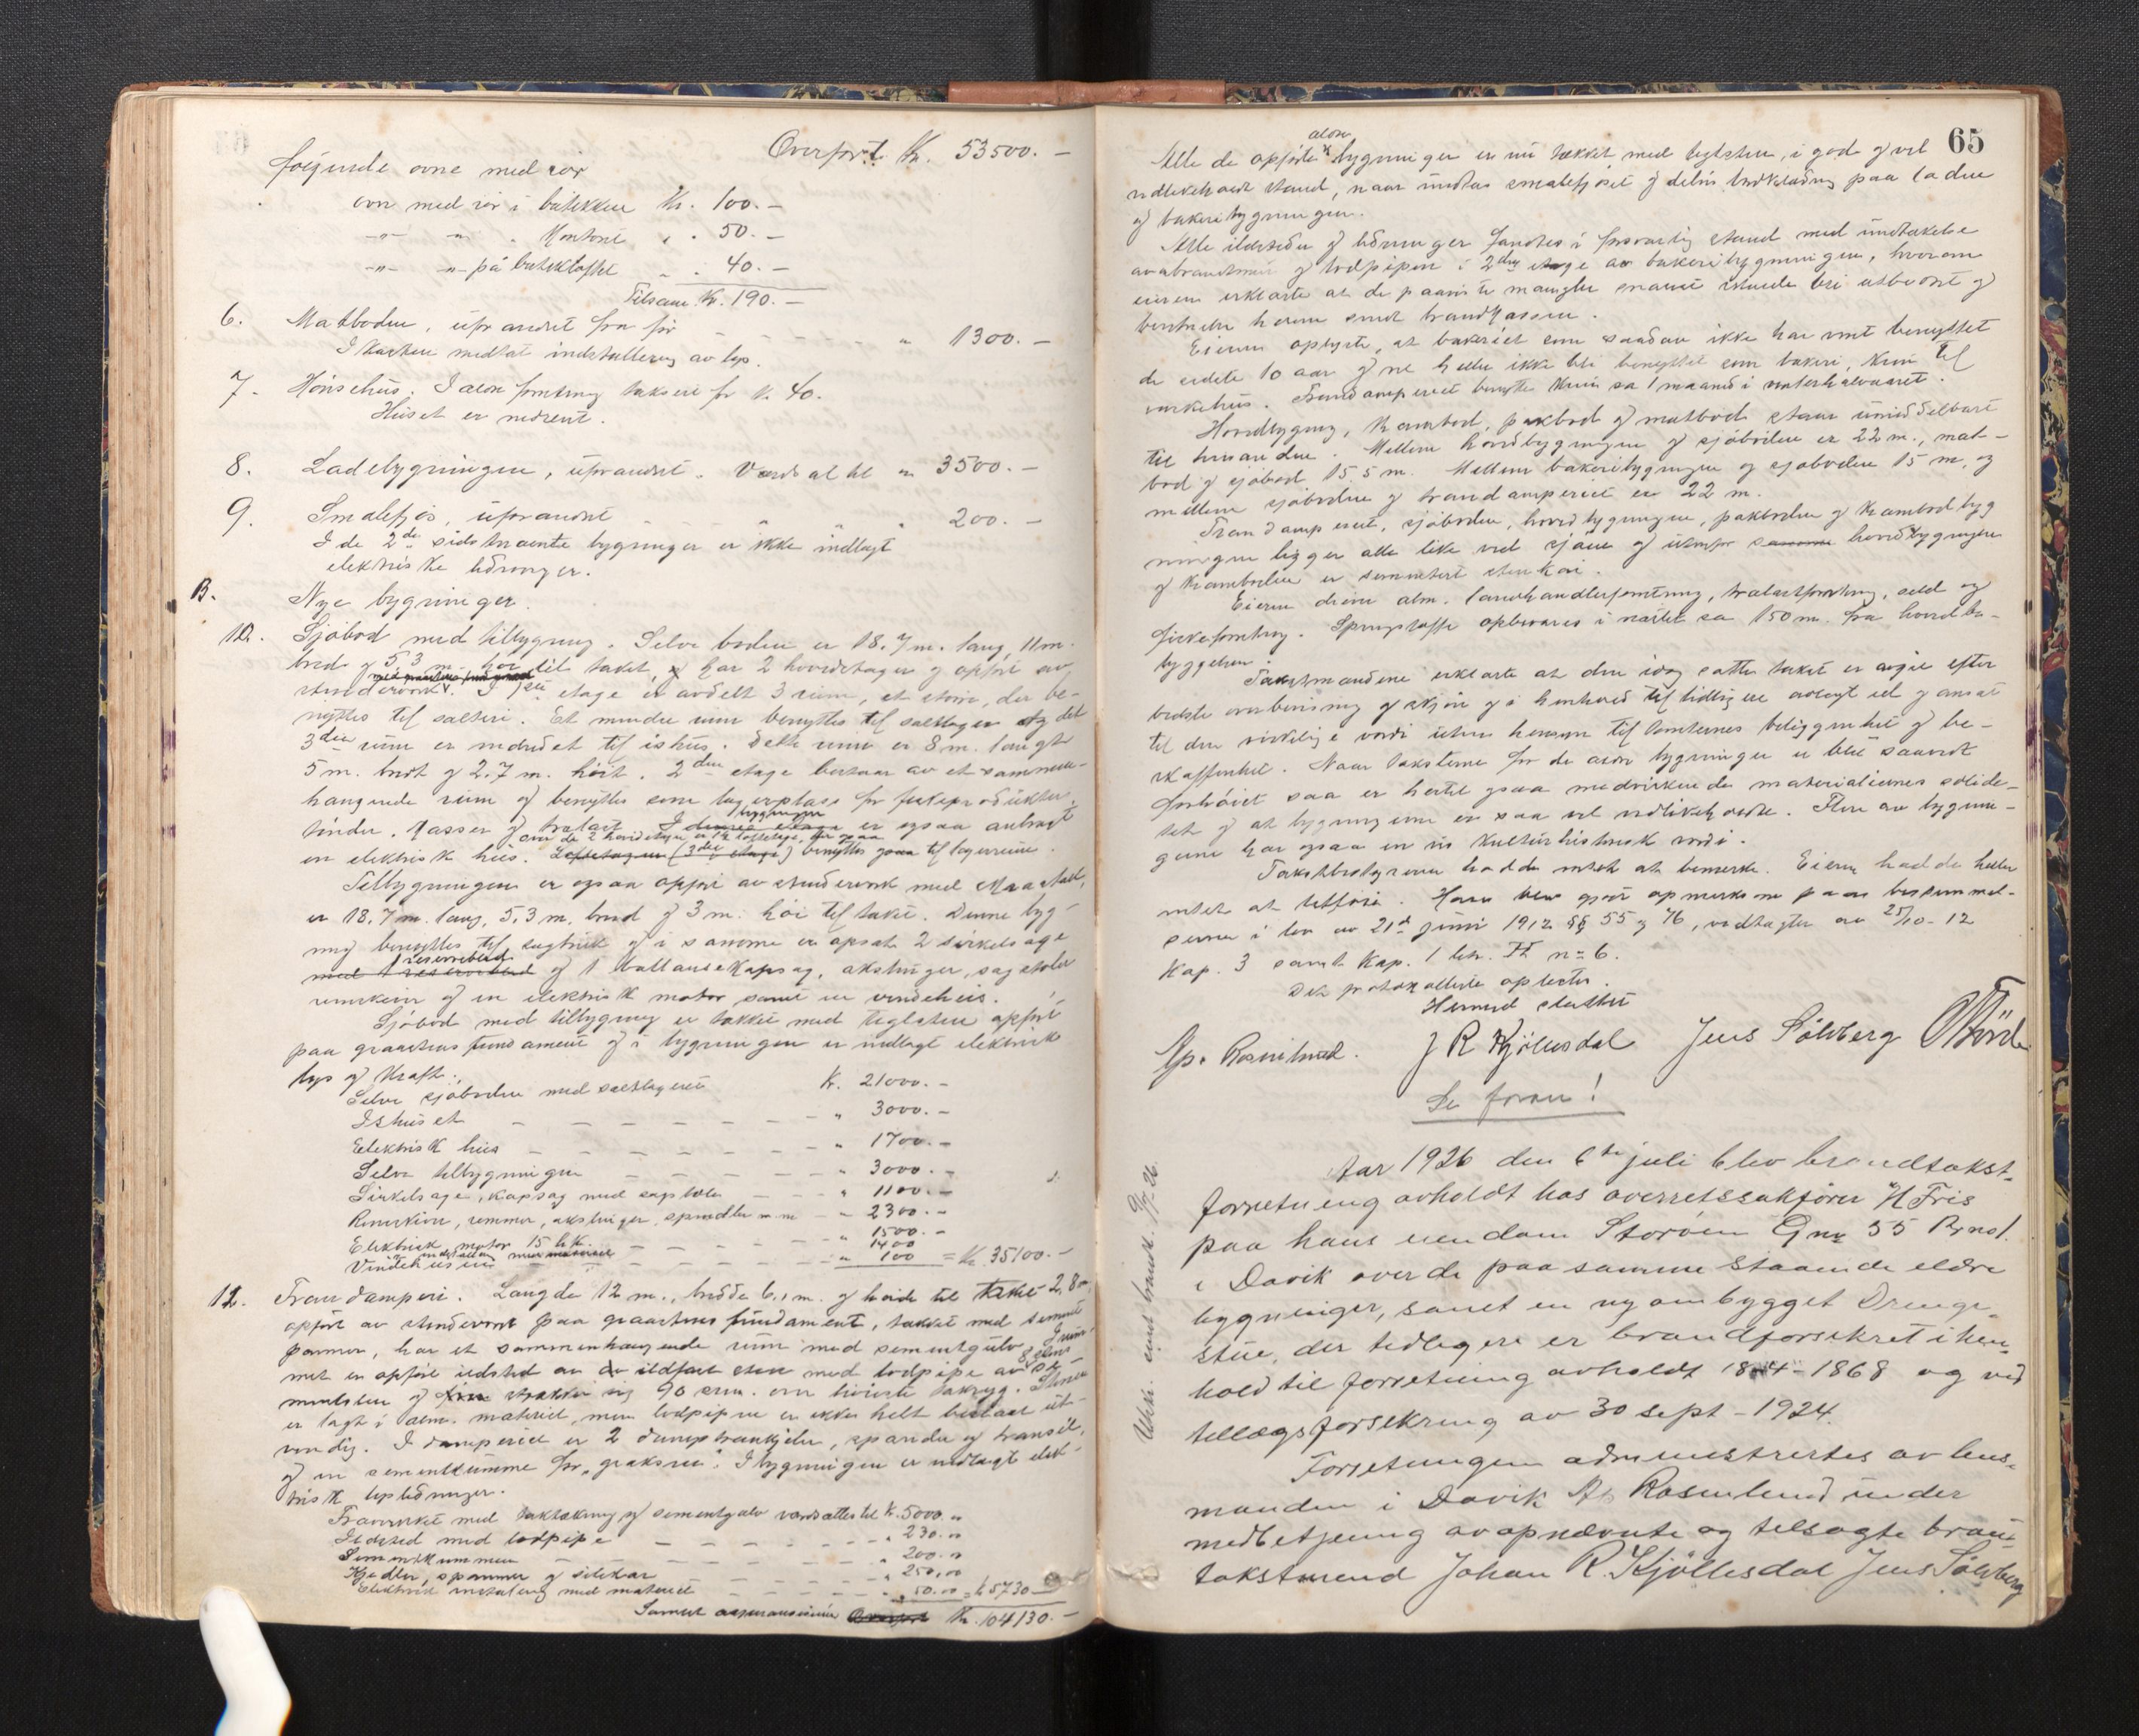 Overført Kr. 53500.–
følgende ovne med rør
ovn med rør i butikken Kr. 100.–
–"– –"– " Kontoret " " 50.–
–"– –"– på butikloftet " " 40.–
Tilsam. Kr. 190.–
6. Matboden, uforandret fra før – – – – " 1300.–
I taksten medtat indstallering av lys.
7. Hönsehus. I ældre forretning taksert for Kr. 40.
Huset er nedrevet.
8. Ladebygningen, uforandret. Værdsat til " 3500.–
9. Smalefjøs, uforandret – – " " " 200.–
I de 2de sidstnævnte bygninger er ikke indlagt
elektriske ledninger.
B. Nye bygninger.
10. Sjöbod med tilbygning. Selve boden er 18.7 m. lang, 11 m.
bred og 5.3 m. høi til taket, har 2 hovedetager og opført av
stenderverk. I 1ste etage er avdelt 3 rum, et större, der be-
nyttes til salteri. Et mindre rum benyttes til saltlager og det
3die rum er indredet til ishus. Dette rum er 8 m. langt
5 m. bredt og 2.7 m. høit. 2den etage bestaar av et sammen-
hængende rum og benyttes som lagerplass for fiskeprodukter,
tönder, kasser og trælast. I bygningen er ogsaa anbragt
en elektrisk heis. over de 2 hovedetager er 1/2 loftetage, der ogsaa benyttes til lagerrum.
Tilbygningen er ogsaa opført av stenderverk med
er 18.7 m. lang, 5.3 m. bred og 3 m. høi til taket. Denne byg-
ning benyttes til sagbruk og i samme er opsat 2 sirkelsage
med 1 reserveblad og 1 ballansekapsag, akslinger, sagstoler
remskiver og en elektrisk motor samt en vindeheis.
Sjöbod med tilbygning er tækket med teglsten opført
paa graastens fundament og i bygningen er indlagt elektrisk
lys og kraft.
Selve sjöboden med saltlageret Kr. 21000.–
Ishuset – – – – – – " 3000.–
Elektrisk heis – – – – – " 1700.–
Selve tilbygningen – – – – " 3000.–
Sirkelsage, kapsag med sagstoler – – " 1100.–
Remskiver, remmer, akslinger, spindler m.m. – " 2300.–
Elektrisk motor 15 h.k. – – – " 1500.–
" 1400
Vindeheisen – – – – " 100 = Kr. 35100.–
12. Trandamperi. Længde 12 m., bredde 6.1 m. og høide til taket 2,80,
opført av stenderverk paa graastens fundament, tækket med sement
panner, har et sammenhængende rum med sementgulv. I rum-
met er opført ildsted av ildfast sten med lodpipe av se-
mentsten og strækker sig 90 ctm. over høieste takryg. Stenen
er lagt i alm. materiel, men lodpipen er ikke helt beslaaet ut-
vendig. I damperiet er 2 damptrankjeler, spander og transil,
og en sementkumme for "graksen". I bygningen er indlagt elek-
trisk lysledninger.
Træverket med taktækning og sementgulv værdsattes til Kr. 5000.00
Ildsted med lodpipe – – – – – " 230.00
Sementkummen – – – – – " 200.00
Kjedler, spanner og silekar – – – " 250.00
Elektrisk instalering med materiel – – – " 50.00 = Kr. 5730.–
Samlet assuransesum Kr. 104130.–
65
Alle de opførte ældre bygninger er nu tækket med teglsten, i god og vel
vedlikeholdt stand, naar undtas smalefjöset og delvis bordklædning paa laden
og bakeribygningen.
Alle ildsteder og ledninger fandtes i forsvarlig stand med undtakelse
av brandmur og lodpipen i 2den etage av bakeribygningen, hvorom
eieren erklærte at de paaviste mangler snarest skulde bli utbedret og
bevidnelse herom sendt brandkassen.
Eieren oplyste, at bakeriet som saadan ikke har vært benyttet
de sidste 10 aar og vil heller ikke bli benyttet som bakeri, kun til
vaskehus. Trandamperiet benyttes kun ca 1 maaned i vinterhalvaaret.
Hovedbygning, krambod, pakbod og matbod staar umiddelbart
til hverandre. Mellem hovedbygningen og sjöboden er 22 m., mat-
bod og sjöbod 15.5 m. Mellem bakeribygningen og sjöboden 15 m, og
mellem sjöboden og trandamperiet er 22 m.
Trandamperiet, sjöboden, hovedbygningen, pakboden og krambodbyg
ningen ligger alle like ved sjøen og utenfor hovedbygningen
og kramboden er sementert stenkai.
Eieren driver alm. landhandlerforretning, trælastforretning, sild og
fiskeforretning. Sprengstoffe opbevares i naustet ca 150 m. fra hovedbe-
byggelsen.
Takstmændene erklærte at den idag satte takst er avgit efter
bedste overbevisning og skjøn og i henhold til tidligere avlagt ed og ansat
til den virkelige værdi uten hensyn til tomternes beliggenhet og be-
skaffenhet. Naar taksterne for de ældre bygninger er blit saavidt
forhöiet saa er hertil ogsaa medvirkende materialiernes solide-
tet og at bygningerne er saa vel vedlikeholdte. Flere av bygnin-
gerne har ogsaa en vis kulturhistorisk værdi.
Takstbestyreren hadde intet at bemerke. Eieren hadde heller
intet at tilføie. Han blev gjort opmerksom paa bestemmel-
serne i lov av 21de juni 1912 §§ 55 og 76, vedtægter av 25/10-12
Kap. 3 samt Kap. 1 litr. II no 6.
Det protokollerte oplæstes.
Hermed sluttet
Ap. Rosenlund. J R Kjöllesdal Jens Sölvberg
Se foran!
Utsk. sendt brandk. 9/7-26.
Aar 1926 den 6te juli blev brandtakst-
forretning avholdt hos overretssakfører H Fris
paa hans eiendom Storöen Gnr 55 Brno 1.
i Davik over de paa samme staaende eldre
bygninger, samt en ny ombygget Drenge-
stue, der tidligere er brandforsikret i hen-
hold til forretning avholdt 18/4-1868 og ved
tillægsforsikring av 30 sept – 1924.
Forretningen administrertes av lens-
manden i Davik Ap Rosenlund under
medbetjening av opnævnte og tilsagte brand-
takstmend Johan R. Kjöllesdal Jens Sölvberg